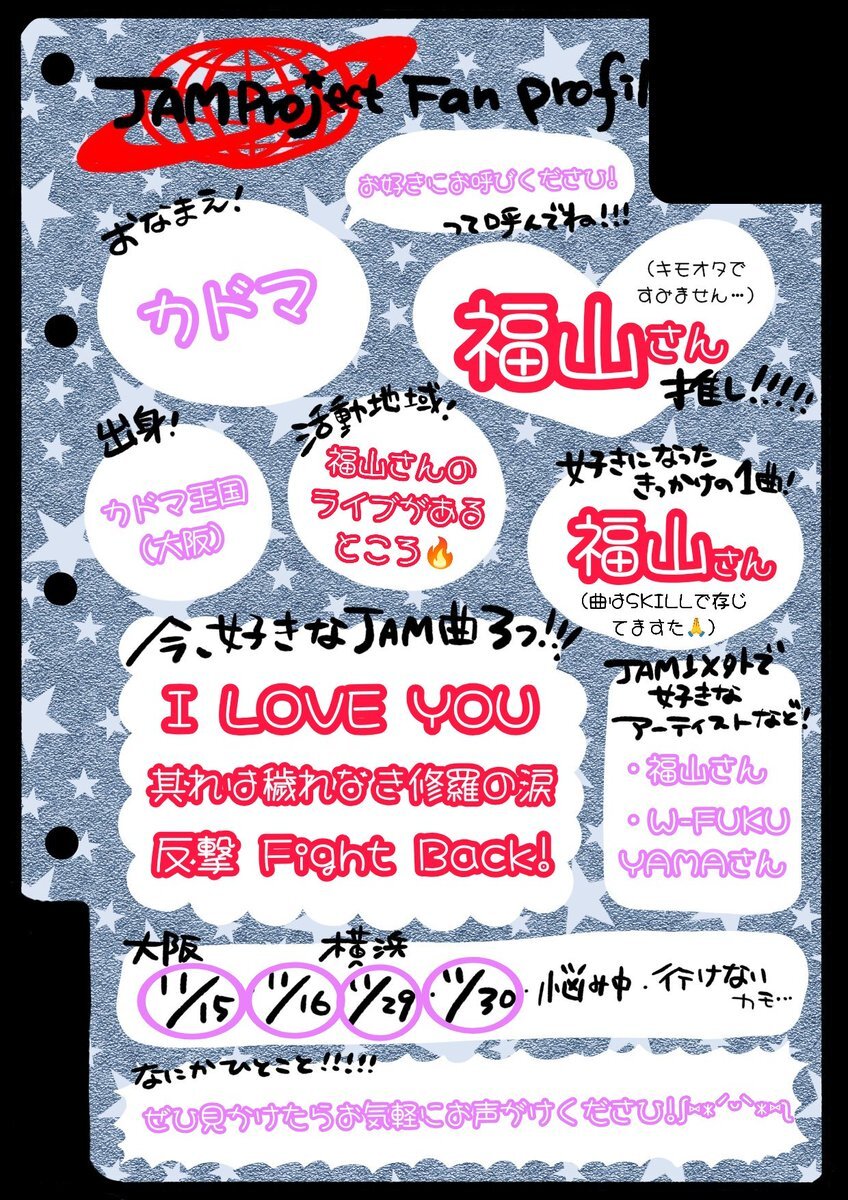 JAM Project Fan profil
お好きにお呼びくださひ!
って呼んでね!!!
おなまえ!
カドマ
(キモオタで
すみません…)
福山さん
推し!!!!!
出身!
カドマ王国
(大阪)
活動地域!
福山さんの
ライブがある
ところ🔥
好きになった
きっかけの1曲!
福山さん
(曲はSKILLで存じ
てますた🙏)
今、好きなJAM曲3つ!!!
I LOVE YOU
其れは穢れなき修羅の涙
反撃 Fight Back!
JAM以外で
好きな
アーティストなど!
・福山さん
・W-FUKU
YAMAさん
大阪 横浜
11/15・11/16・11/29・11/30・悩み中・行けない
カモ…
なにかひとこと!!!!!
ぜひ見かけたらお気軽にお声がけくださひ!